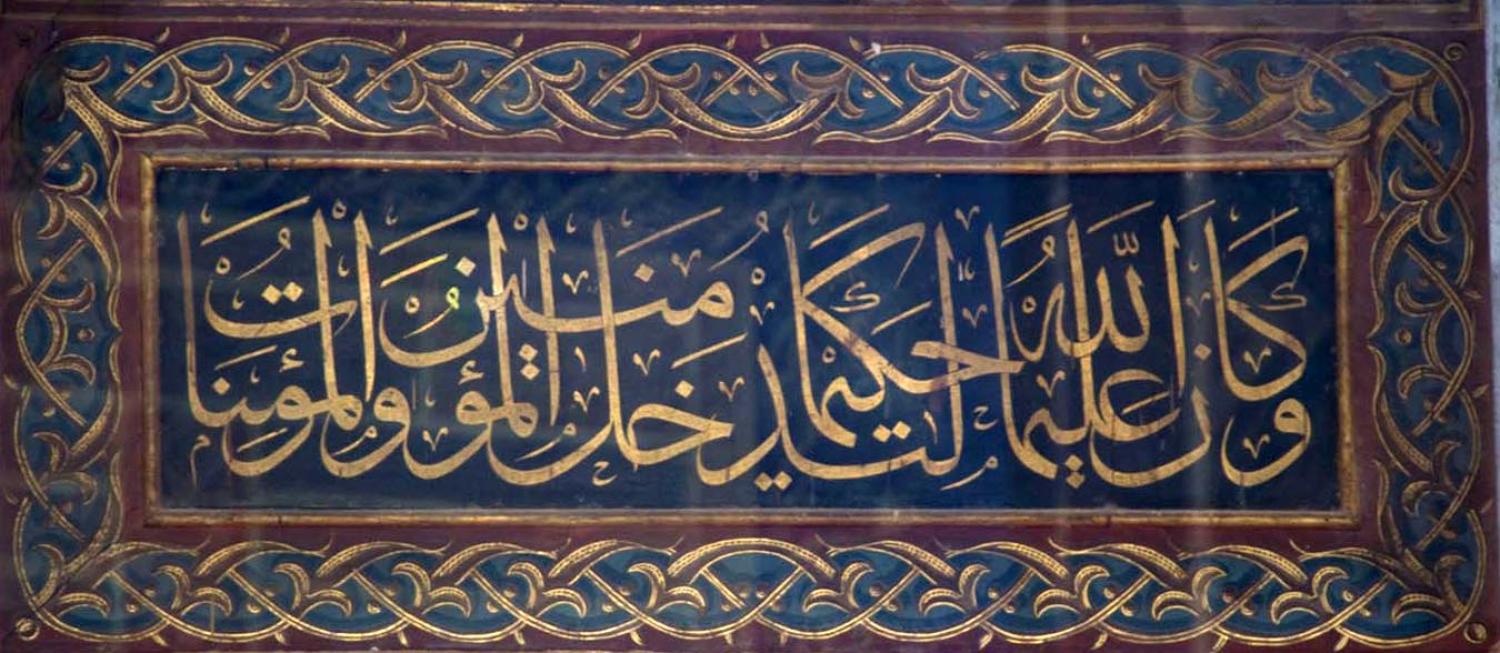 وَكَانَ اللّٰهُ عَلِيمًا حَكِيمًا لِيُدْخِلَ الْمُؤْمِنِينَ وَالْمُؤْمِنَاتِ